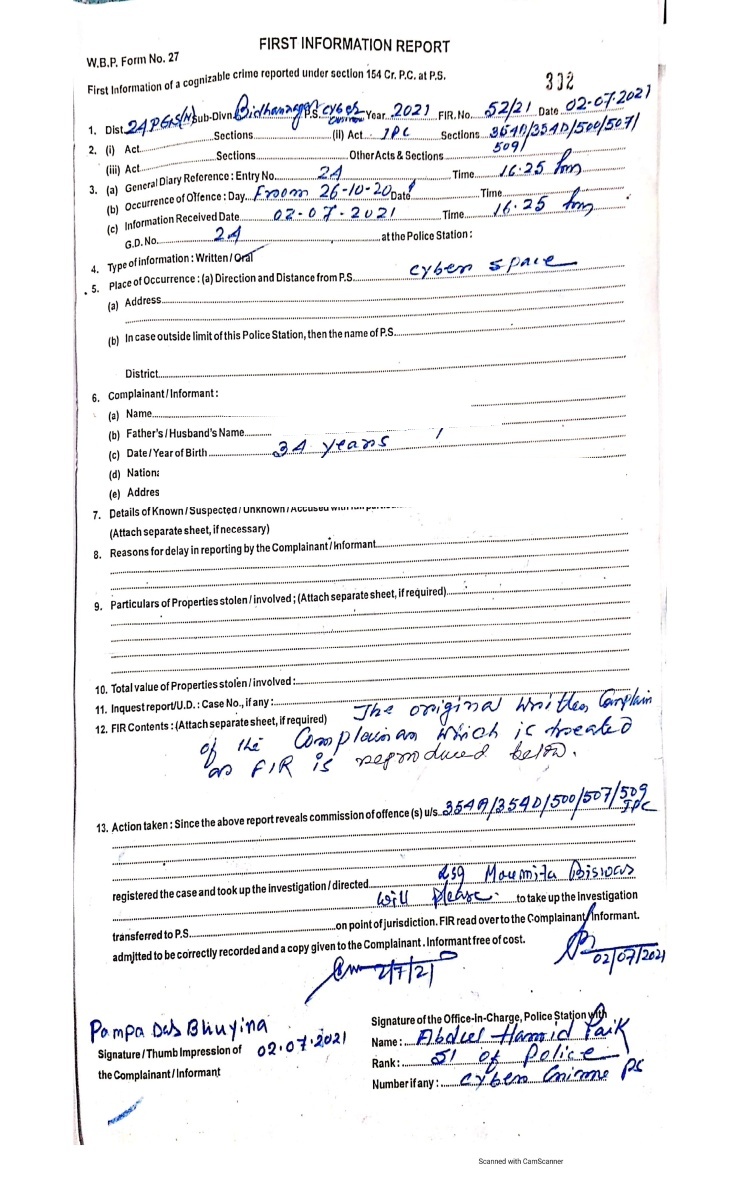 FIRST INFORMATION REPORT
W.B.P. Form No. 27
First Information of a cognizable crime reported under section 154 Cr. P.C. at P.S.
332
1. Dist. 24PGS(N) Sub-Divn. Bidhannagar P.S. Cyber Crime Year 2021 FIR. No. 52/21 Date 02-07-2021
2. (i) Act Sections (II) Act IPC Sections 354A/354D/500/507/
509/
(iii) Act Sections Other Acts & Sections
3. (a) General Diary Reference : Entry No. 24 Time 16.25 hrs
(b) Occurrence of Offence : Day From 26-10-20 Date Time
(c) Information Received Date 02-07-2021 Time 16.25 hrs
G.D. No. 24 at the Police Station :
4. Type of information : Written / Oral
5. Place of Occurrence : (a) Direction and Distance from P.S. Cyber space
(a) Address
(b) In case outside limit of this Police Station, then the name of P.S.
District
6. Complainant / Informant :
(a) Name
(b) Father's / Husband's Name
(c) Date / Year of Birth 34 years
(d) Nation
(e) Addres
7. Details of Known / Suspected / Unknown / Accused with
(Attach separate sheet, if necessary)
8. Reasons for delay in reporting by the Complainant / Informant
9. Particulars of Properties stolen / involved ; (Attach separate sheet, if required)
10. Total value of Properties stolen / involved :
11. Inquest report/U.D. : Case No., if any :
12. FIR Contents : (Attach separate sheet, if required) The original written Complain
of the Complainan which is treated
as FIR is reproduced below.
13. Action taken : Since the above report reveals commission of offence (s) u/s. 354A/354D/500/507/509
IPC
registered the case and took up the investigation / directed Moumita Biswas
will please to take up the investigation
transferred to P.S. on point of jurisdiction. FIR read over to the Complainant/Informant.
admitted to be correctly recorded and a copy given to the Complainant. Informant free of cost.
2/7/21
02/07/2021
Pampa Das Bhuyina
Signature / Thumb Impression of 02.07.2021
the Complainant / Informant
Signature of the Office-in-Charge, Police Station with
Name : Abdul Hamid Paik
Rank : SI of Police
Number if any : Cyber Crime PS
Scanned with CamScanner